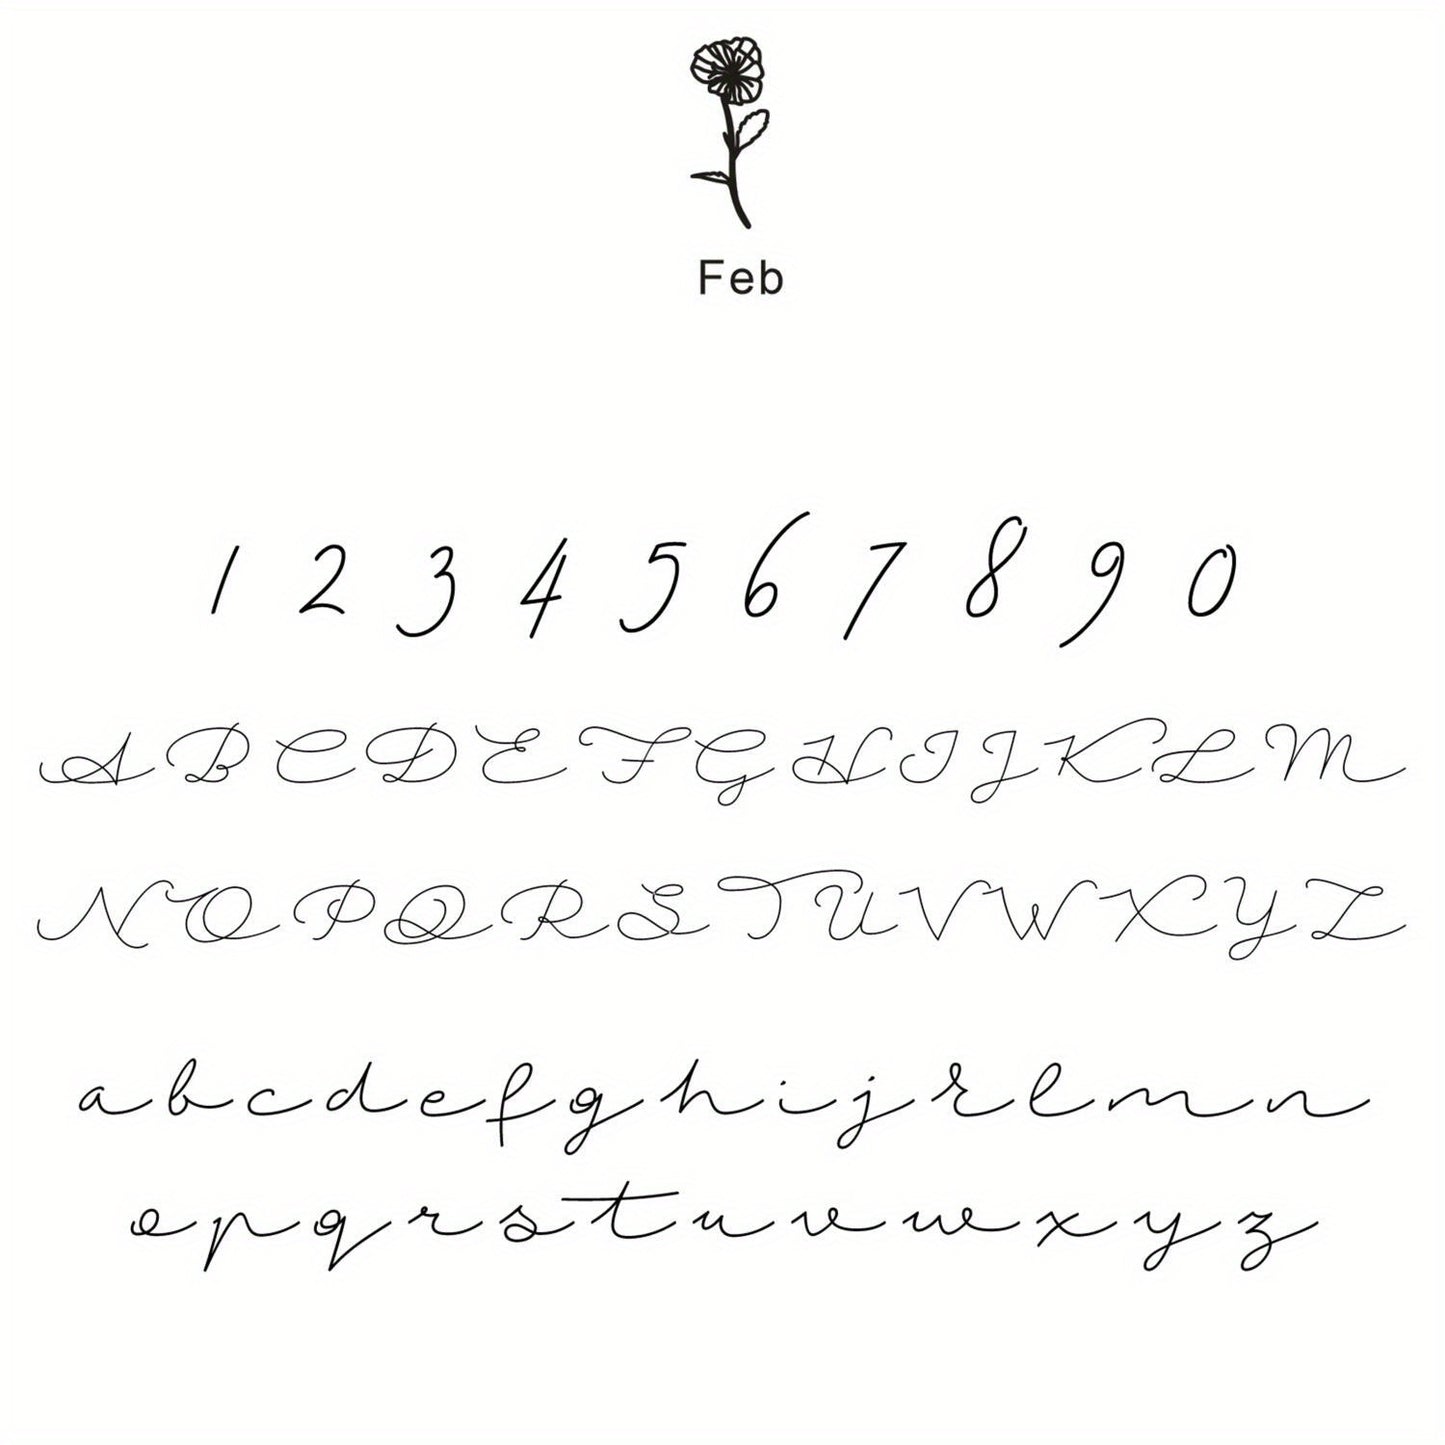 Feb
1 2 3 4 5 6 7 8 9 0
A B C D E F G H I J K L M
N O P Q R S T U V W X Y Z
a b c d e f g h i j k l m n
o p q r s t u v w x y z